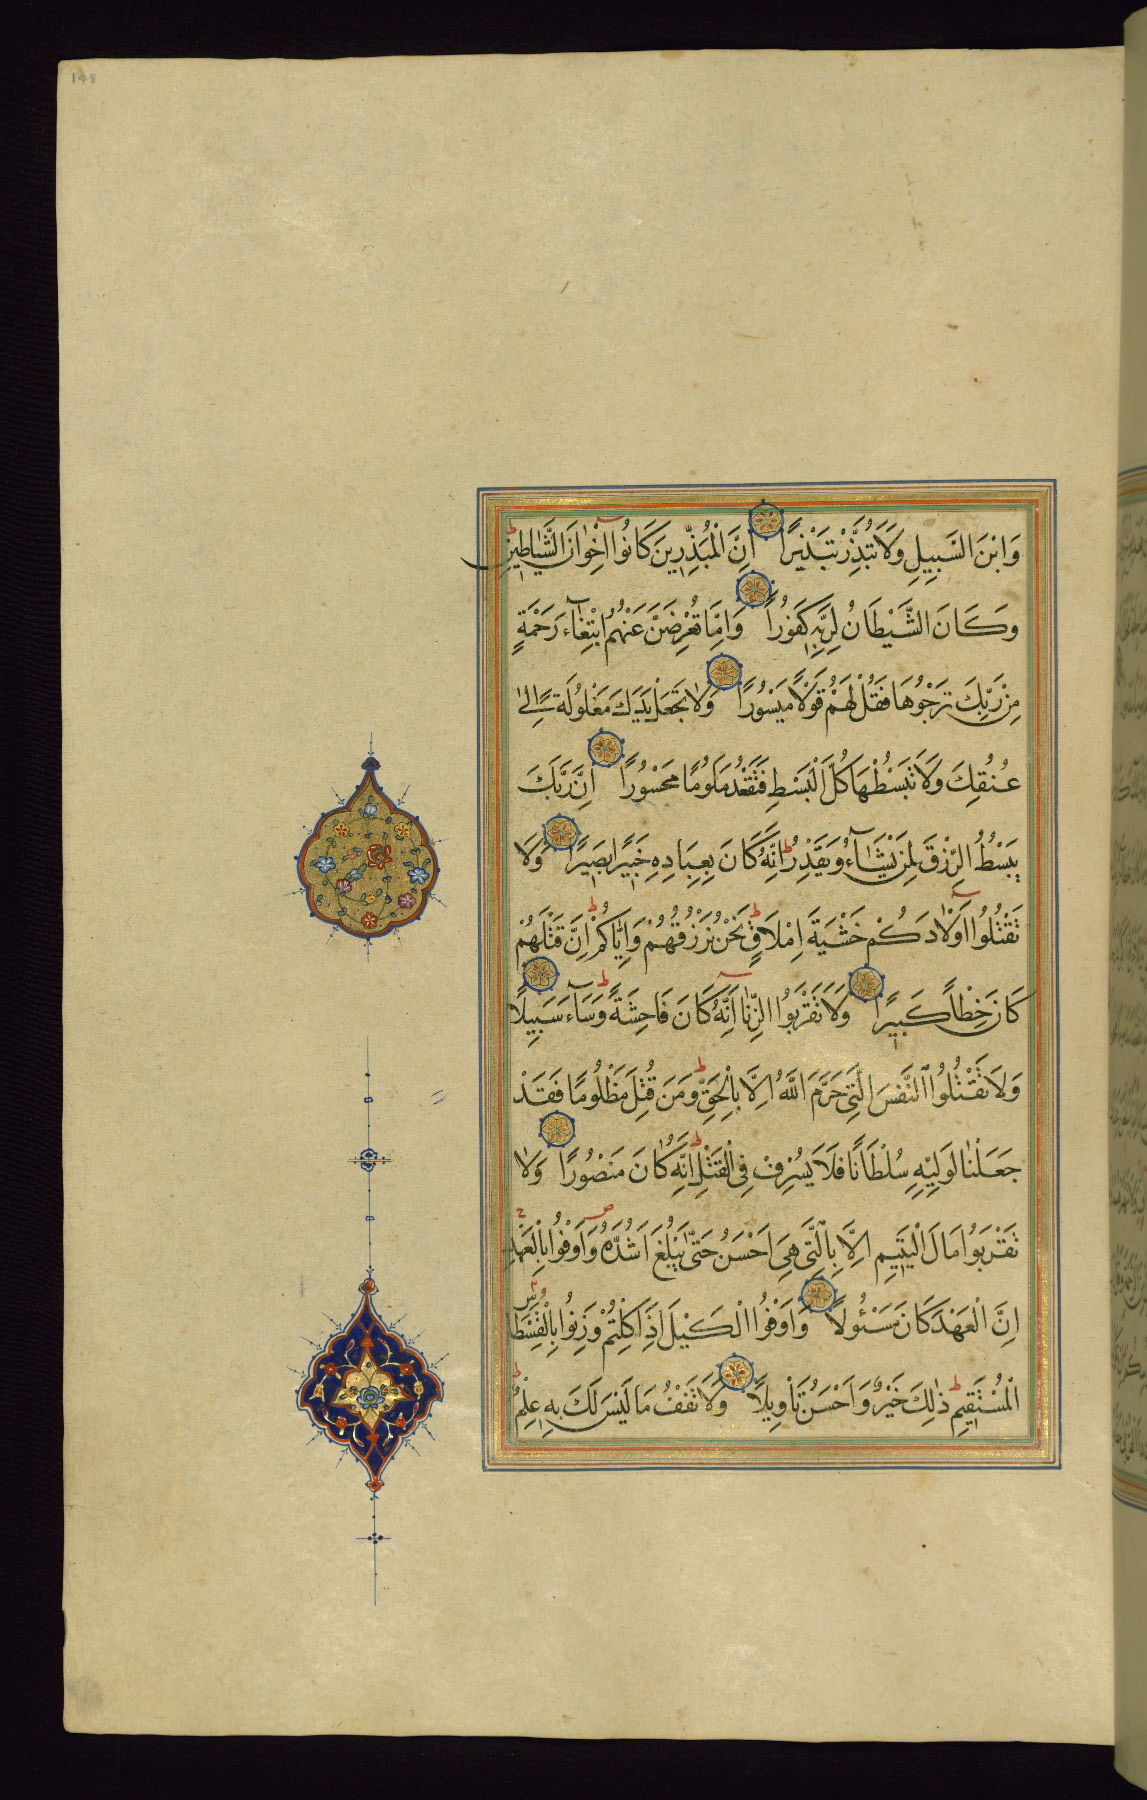 وَابْنَ السَّبِيلِ وَلَا تُبَذِّرْ تَبْذِيرًا اِنَّ الْمُبَذِّرِينَ كَانُوا اِخْوَانَ الشَّيَاطِينِ
وَكَانَ الشَّيْطَانُ لِرَبِّهِ كَفُورًا وَاِمَّا تُعْرِضَنَّ عَنْهُمُ ابْتِغَاءَ رَحْمَةٍ
مِنْ رَبِّكَ تَرْجُوهَا فَقُلْ لَهُمْ قَوْلًا مَيْسُورًا وَلَا تَجْعَلْ يَدَكَ مَغْلُولَةً اِلٰى
عُنُقِكَ وَلَا تَبْسُطْهَا كُلَّ الْبَسْطِ فَتَقْعُدَ مَلُومًا مَحْسُورًا اِنَّ رَبَّكَ
يَبْسُطُ الرِّزْقَ لِمَنْ يَشَاءُ وَيَقْدِرُ اِنَّهُ كَانَ بِعِبَادِهِ خَبِيرًا بَصِيرًا وَلَا
تَقْتُلُوا اَوْلَادَكُمْ خَشْيَةَ اِمْلَاقٍ نَحْنُ نَرْزُقُهُمْ وَاِيَّاكُمْ اِنَّ قَتْلَهُمْ
كَانَ خِطْاً كَبِيرًا وَلَا تَقْرَبُوا الزِّنَا اِنَّهُ كَانَ فَاحِشَةً وَسَاءَ سَبِيلًا
وَلَا تَقْتُلُوا النَّفْسَ الَّتِي حَرَّمَ اللَّهُ اِلَّا بِالْحَقِّ وَمَنْ قُتِلَ مَظْلُومًا فَقَدْ
جَعَلْنَا لِوَلِيِّهِ سُلْطَانًا فَلَا يُسْرِفْ فِي الْقَتْلِ اِنَّهُ كَانَ مَنْصُورًا وَلَا
تَقْرَبُوا مَالَ الْيَتِيمِ اِلَّا بِالَّتِي هِيَ اَحْسَنُ حَتَّى يَبْلُغَ اَشُدَّهُ وَاَوْفُوا بِالْعَهْدِ
اِنَّ الْعَهْدَ كَانَ مَسْئُولًا وَاَوْفُوا الْكَيْلَ اِذَا كِلْتُمْ وَزِنُوا بِالْقِسْطَاسِ
الْمُسْتَقِيمِ ذٰلِكَ خَيْرٌ وَاَحْسَنُ تَأْوِيلًا وَلَا تَقْفُ مَا لَيْسَ لَكَ بِهِ عِلْمٌ